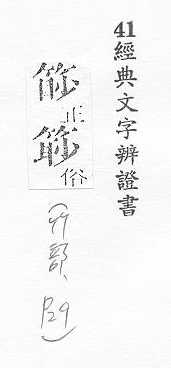 41 經典文字辨證書
正
俗
(竹部、P29)